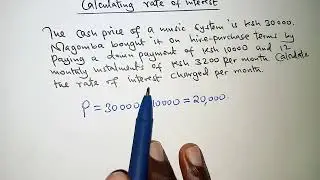 Calculating rate of interest
The cash price of a music system is Ksh 30000.
Nlagomba bought it on hire-purchase terms by
Paying a down payment of Ksh 10000 and 12
monthly instalments of Ksh 3200 per month. Calculate
the rate of interest charged per month.
P = 30000 10000 = 20,000